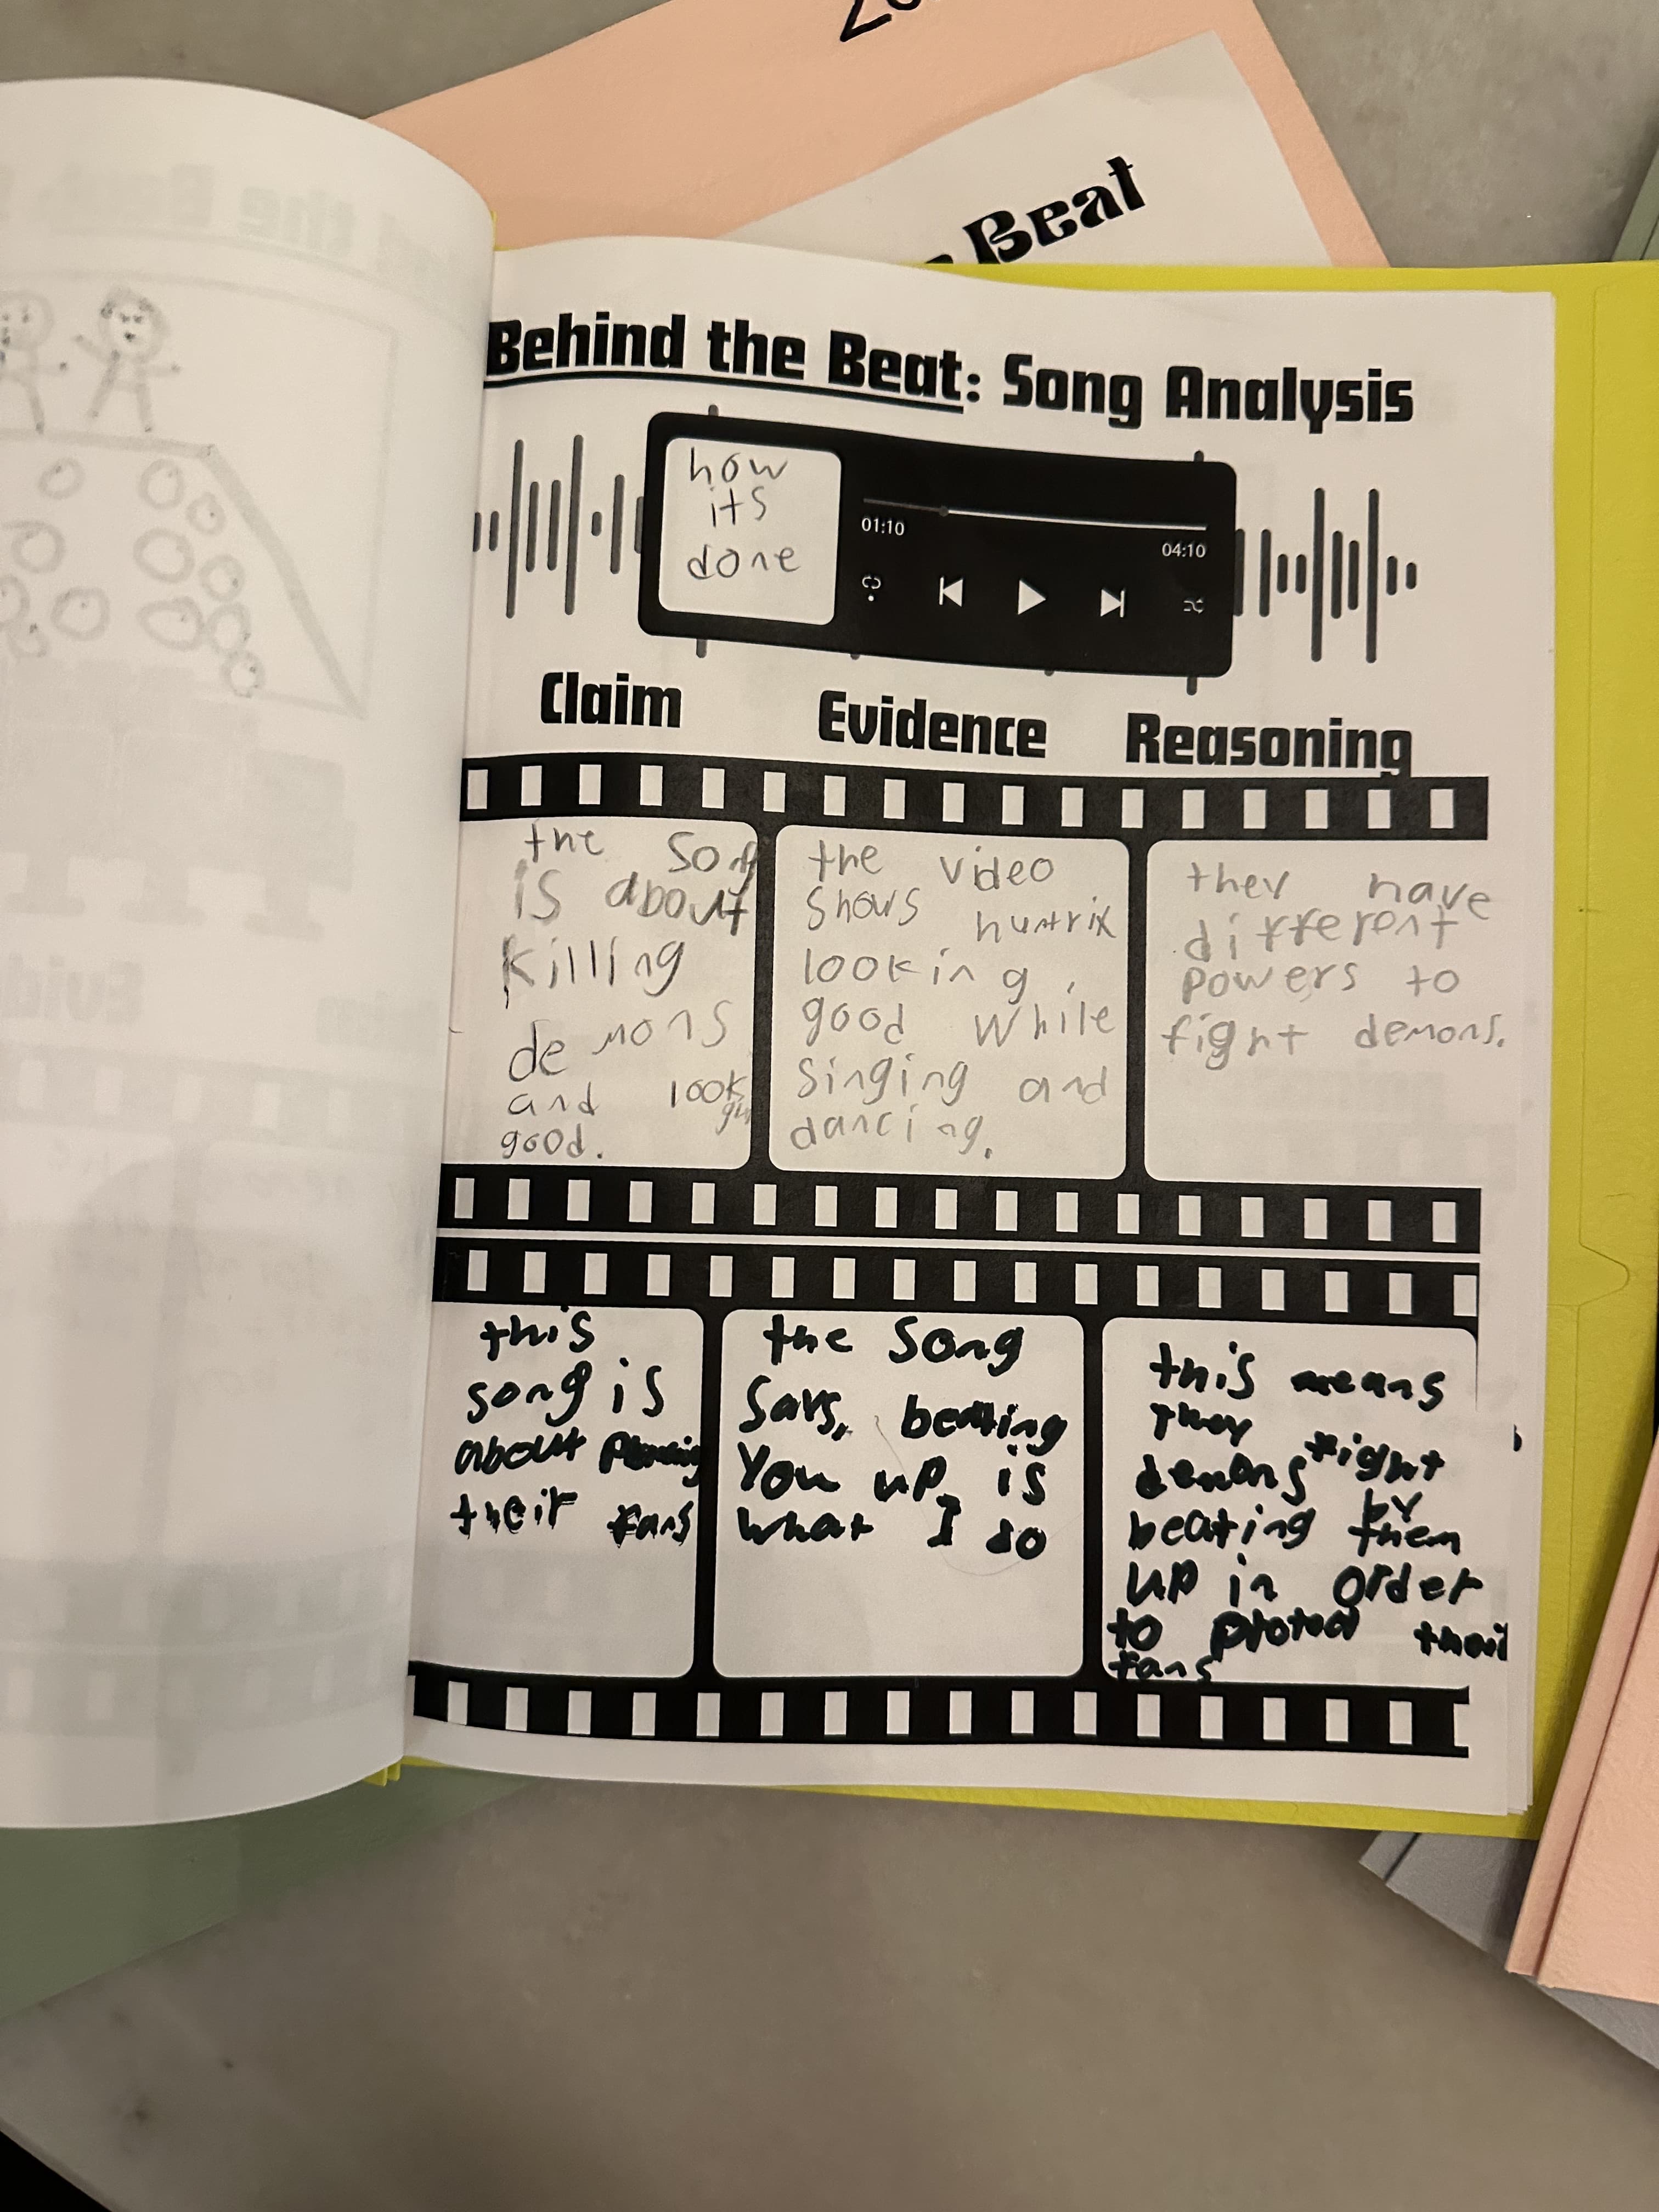 Beat
Behind the Beat: Song Analysis
how
its
done
01:10
04:10
Claim
Evidence
Reasoning
the song
is about
killing
demons
and look
good.
the video
shows huntrix
looking
good while
singing and
dancing.
they have
different
powers to
fight demons.
this
song is
about
their fans
the song
says, beating
you up, is
what I do
this means
they fight
demons by
beating them
up in order
to protect their
fans